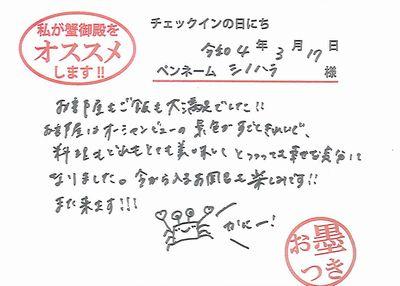 私が蟹御殿を
オススメ
します!!
チェックインの日にち
令和 4 年 3 月 17 日
ペンネーム シノハラ 様
お部屋もご飯も大満足でした!!
お部屋はオーシャンビューの景色がすごくきれいで、
料理もどれもとても美味しくとっっっても幸せな気分に
なりました。今から入るお風呂も楽しみです!!
また来ます!!!
かにー!
お墨
つき